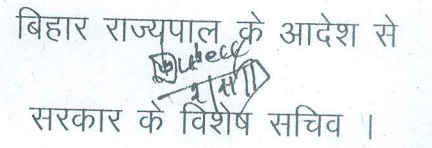 बिहार राज्यपाल के आदेश से
सरकार के विशेष सचिव ।